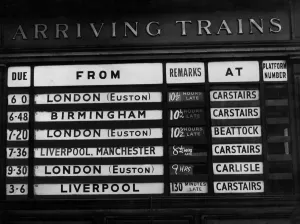 ARRIVING TRAINS
DUE FROM REMARKS AT PLATFORM NUMBER
6 0 LONDON (EUSTON) HOURS LATE CARSTAIRS
6-48 BIRMINGHAM HOURS LATE CARSTAIRS
7-20 LONDON (EUSTON) HOURS LATE BEATTOCK
7-36 LIVERPOOL, MANCHESTER CARSTAIRS
9-30 LONDON (EUSTON) 9 HRS CARLISLE
3-6 LIVERPOOL 130 MINUTES LATE CARSTAIRS